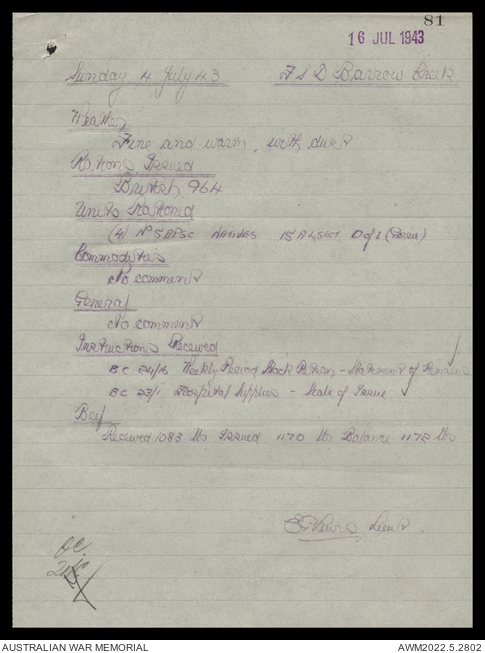 81
16 JUL 1943
Sunday 4 July 43 F S D Barrow Creek
Weather
Fine and warm, with dust
Rations Issued
British 964
Units Rationed
(4) No 5 APSC NATIVES 15 ALSECT D of I
Commodities
No comment
General
No comment
Instructions Received
BC 24/16 Weekly Period Stock Return - Statement of Remains
BC 23/1 Hospital Supplies - Scale of Issue
Beef
Received 1083 lbs Issued 1170 lbs Balance 1172 lbs
Lieut.
OC.
AUSTRALIAN WAR MEMORIAL AWM2022.5.2802